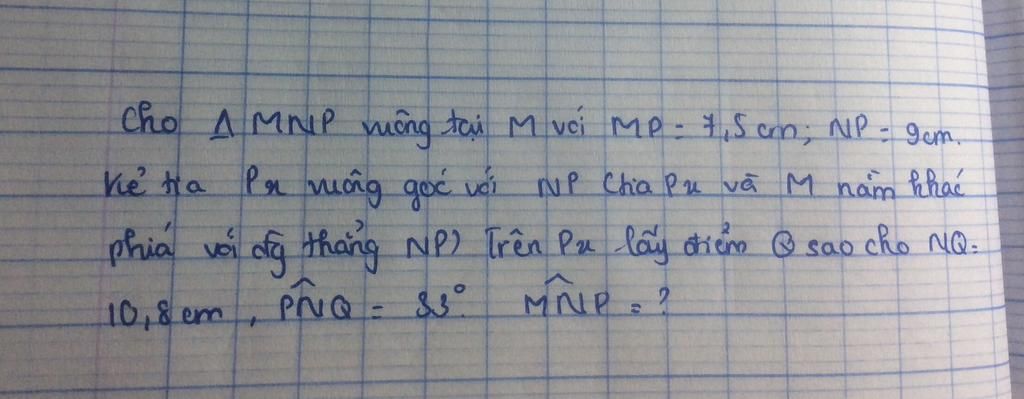 Cho Δ MNP vuông tại M với MP = 7,5 cm; NP = 9cm.
Kẻ tia Px vuông góc với NP (tia Px và M nằm khác
phía với đg thẳng NP) Trên Px lấy điểm Q sao cho NQ =
10,8 cm, PN̂Q = 33°. MN̂P = ?